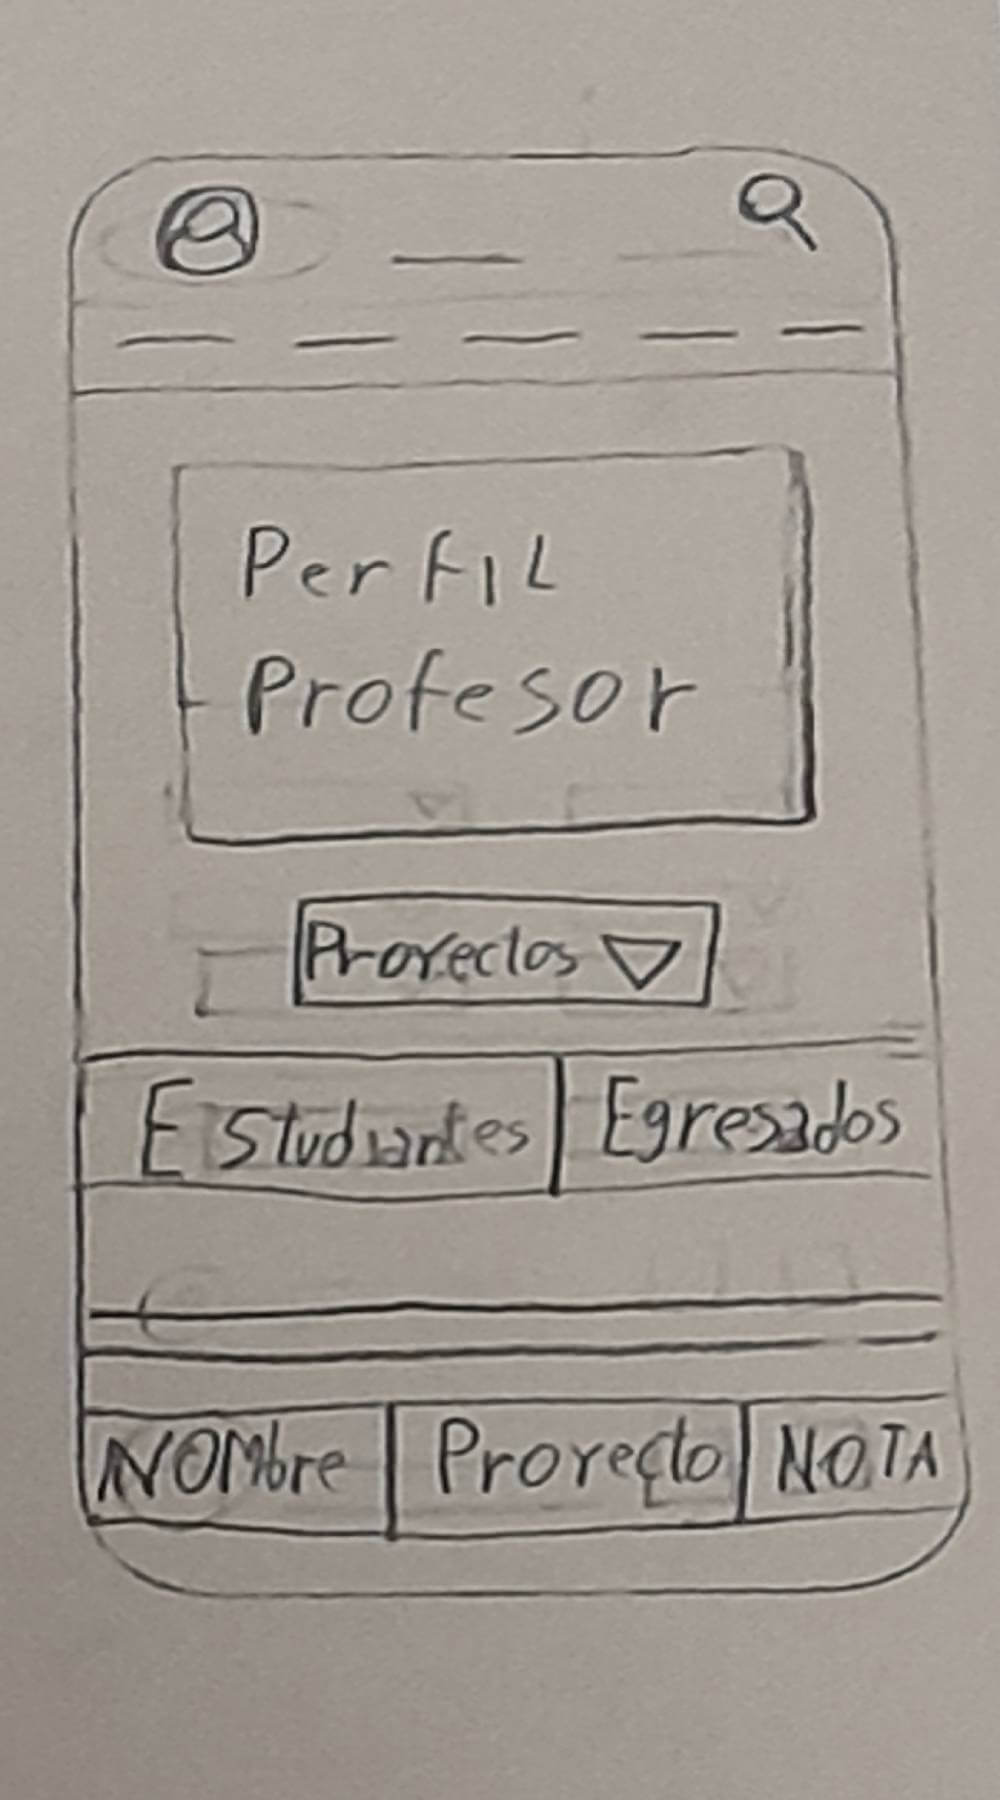 PerfIL
Profesor
Proyectos
Estudiantes Egresados
NOMbre Proyecto NOTA